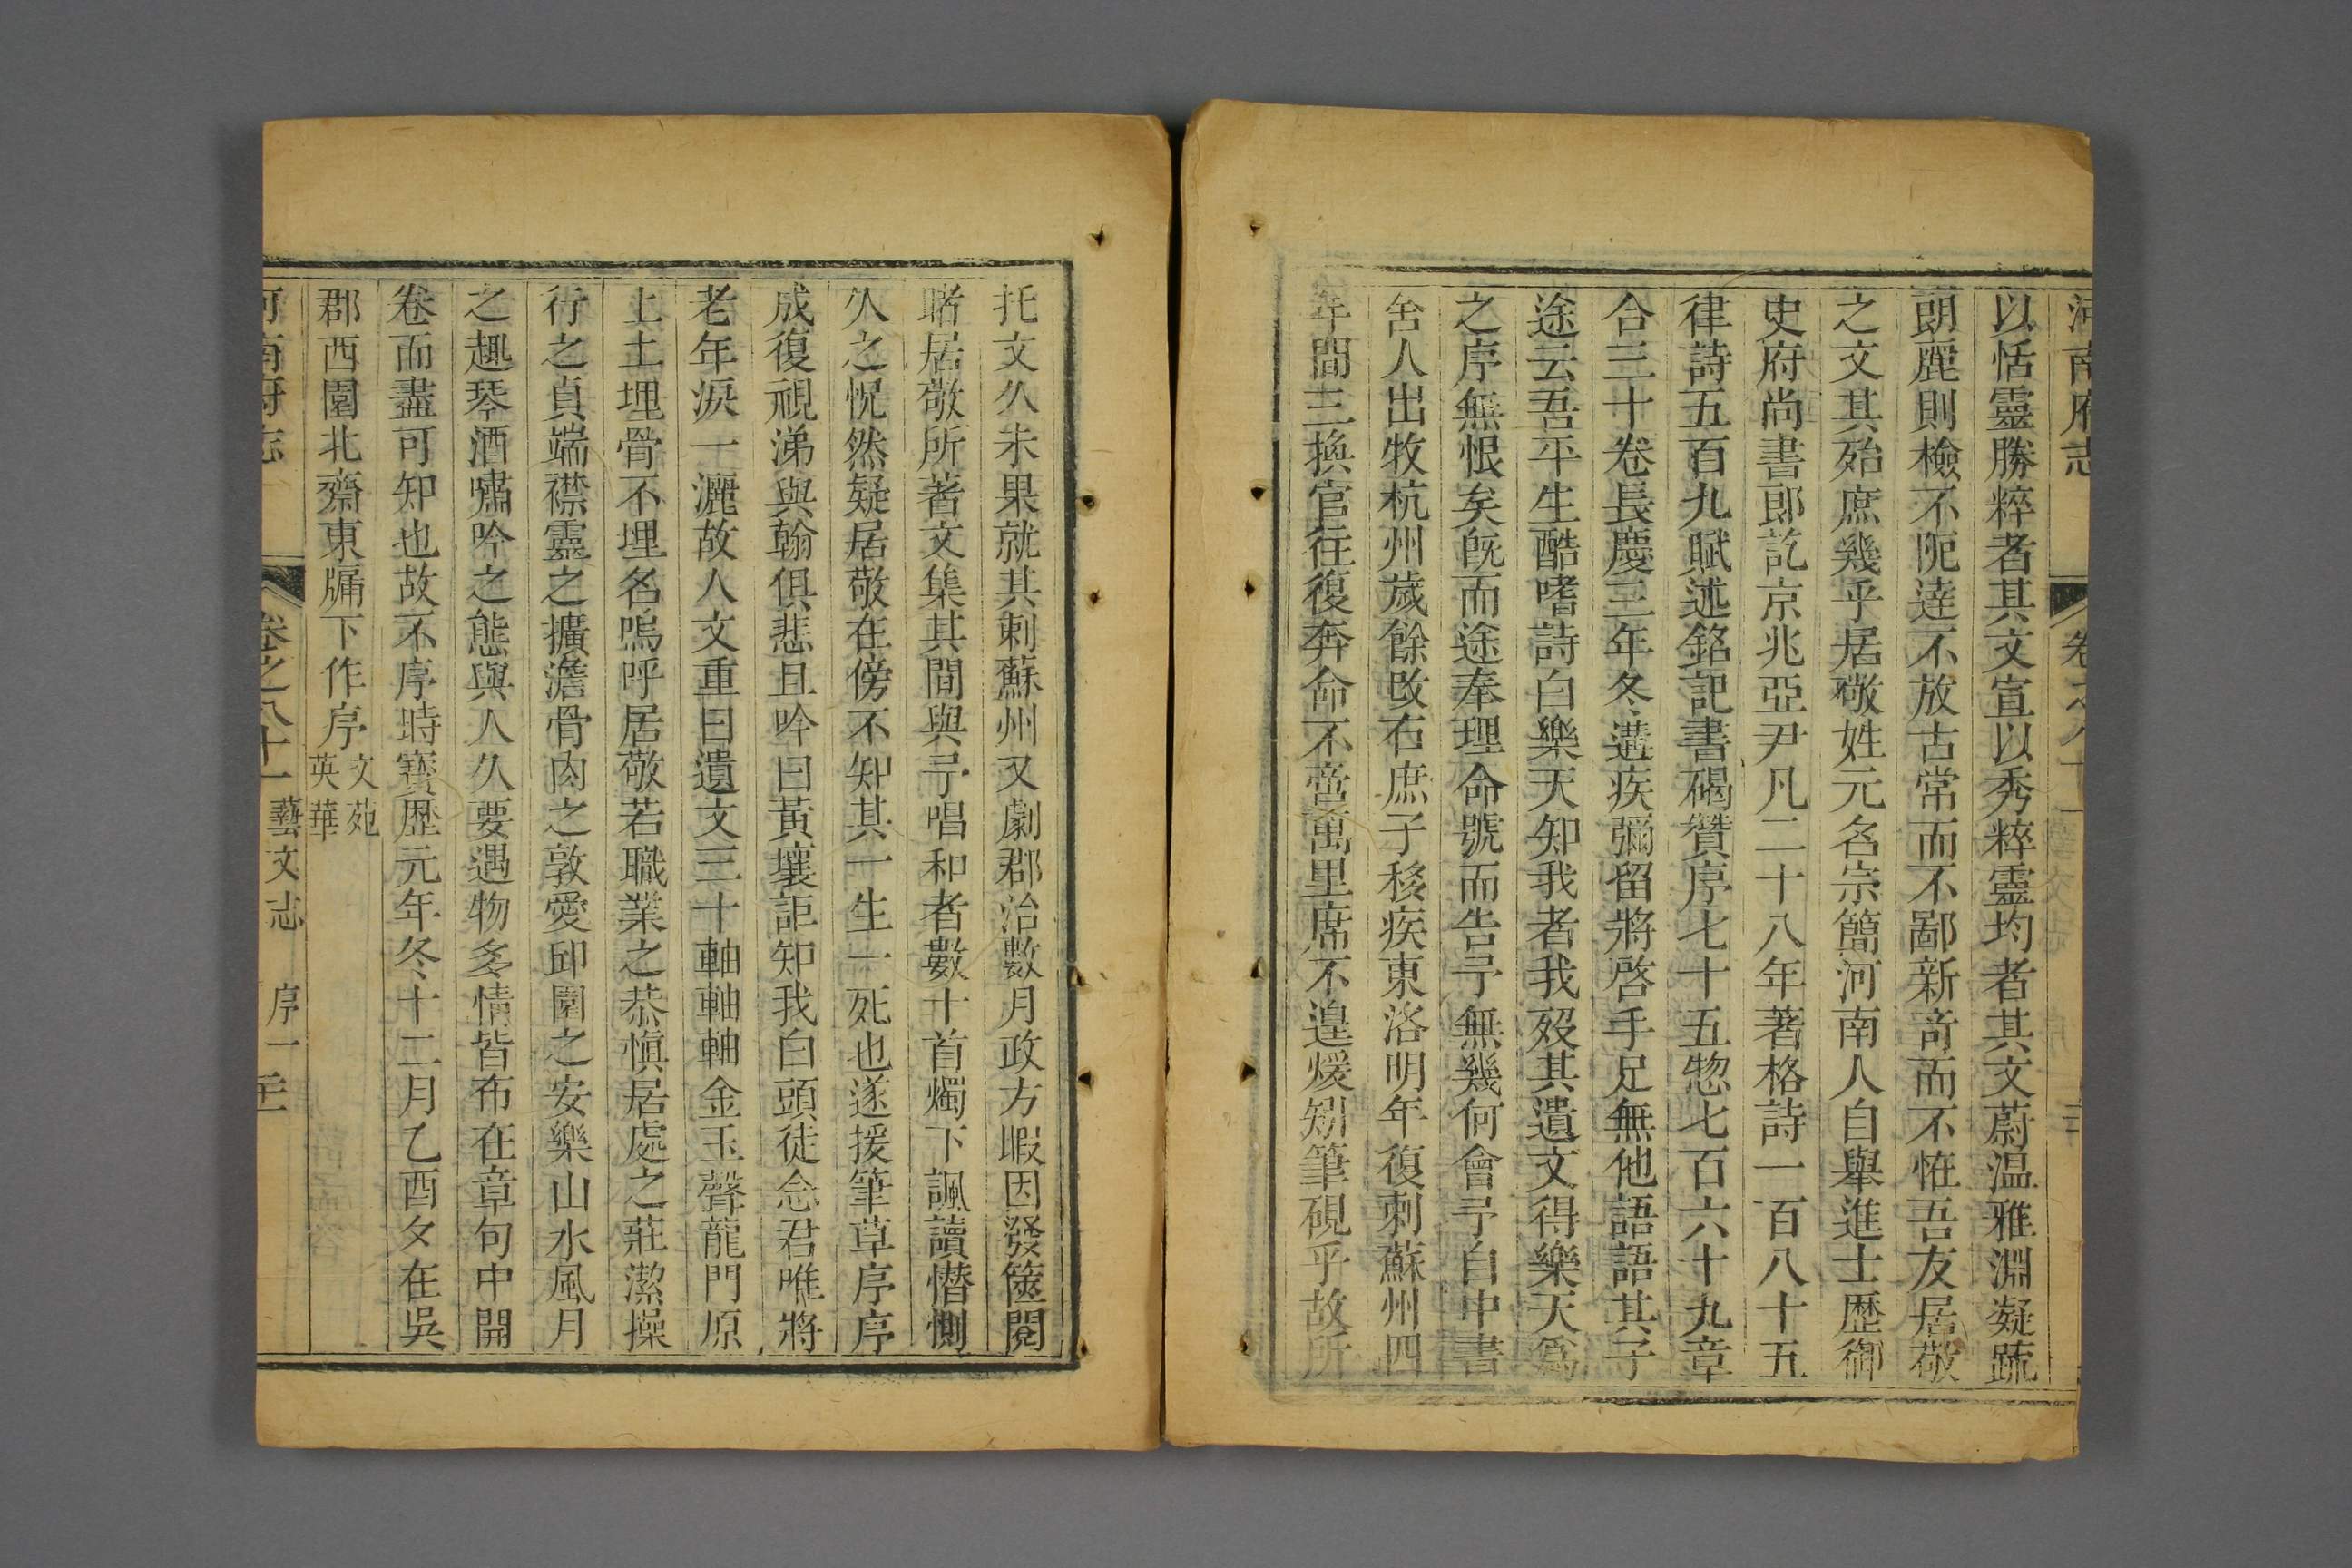 河南府志 卷之八十一
以恬靈勝粹者其文宣以秀粹靈均者其文蔚温雅淵凝疏
朗麗則檢不阨達不放古常而不鄙新竒而不恠吾友居敬
之文其殆庶幾乎居敬姓元名宗簡河南人自舉進士歷御
史府尚書郎訖京兆亞尹凡二十八年著格詩一百八十五
律詩五百九賦述銘記書碣贊序七十五惣七百六十九章
合三十卷長慶三年冬遘疾彌留將啓手足無他語語其子
途云吾平生酷嗜詩白樂天知我者我殁其遺文得樂天爲
之序無恨矣旣而途奉理命號而告予無幾何會予自中書
舍人出牧杭州歲餘改右庶子移疾東洛明年復刺蘇州四
年間三換官往復奔命不啻萬里席不遑煖矧筆硯乎故所
托文久未果就其刺蘇州又劇郡治數月政方暇因發篋閱
睹居敬所著文集其間與予唱和者數十首燭下諷讀憯惻
久之怳然疑居敬在傍不知其一生一死也遂援筆草序序
成復視涕與翰俱悲且吟曰黃壤詎知我白頭徒念君唯將
老年淚一灑故人文重曰遺文三十軸軸軸金玉聲龍門原
上土埋骨不埋名嗚呼居敬若職業之恭愼居處之莊潔操
行之貞端襟靈之擴澹骨肉之敦愛邱園之安樂山水風月
之趣琴酒嘯吟之態與人久要遇物多情皆布在章句中開
卷而盡可知也故不序時寶歴元年冬十二月乙酉夕在吳
郡西園北齋東牖下作序 文苑英華
河南府志 卷之八十一 藝文志 序一